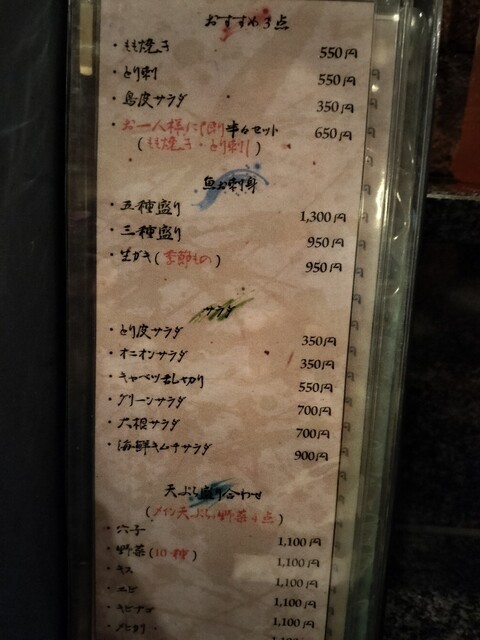 おすすめ3点
・もも焼き 550円
・とり刺 550円
・鳥皮サラダ 350円
・お一人様に限り半々セット 650円
(もも焼き・とり刺)
魚お刺身
・五種盛り 1,300円
・三種盛り 950円
・生ガキ(季節もの) 950円
サラダ
・とり皮サラダ 350円
・オニオンサラダ 350円
・キャベツ 550円
・グリーンサラダ 700円
・大根サラダ 700円
・海鮮キムチサラダ 900円
天ぷら盛り合わせ
(メイン天ぷら+野菜4点)
・穴子 1,100円
・野菜(10種) 1,100円
・キス 1,100円
・エビ 1,100円
・キビナゴ 1,100円
・メヒカリ